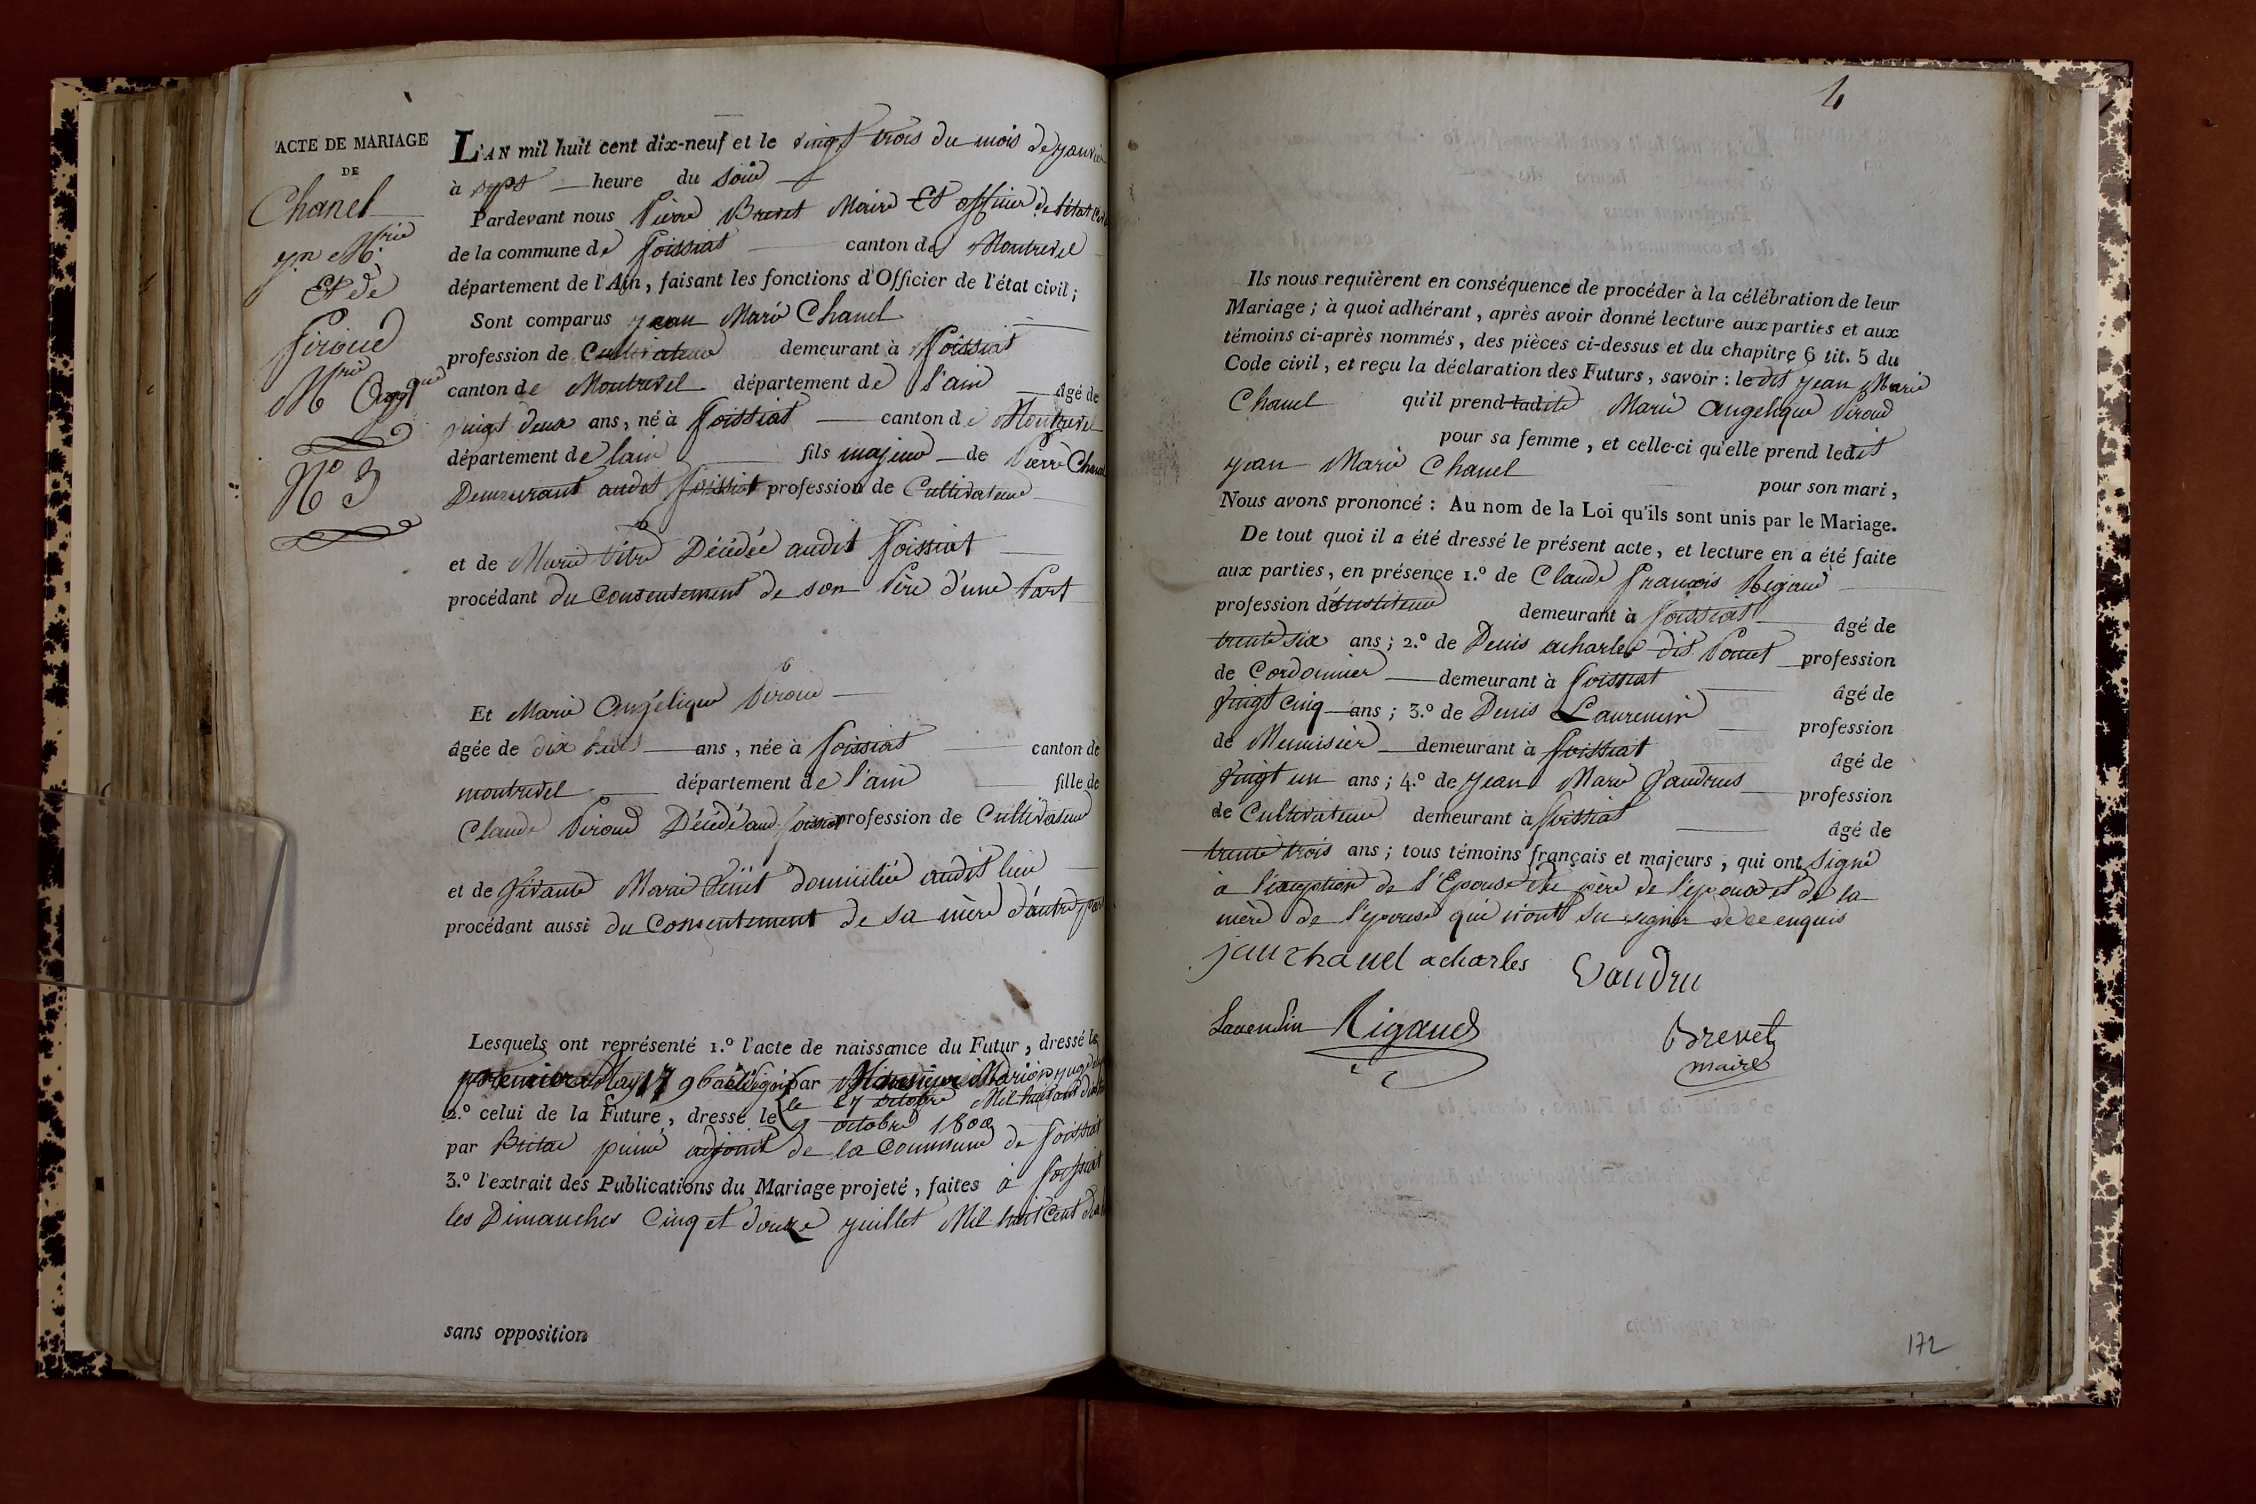 ACTE DE MARIAGE
DE
Chanel
jn Mrie
Et de
Piroud
Mrie Angque
N.º 3
L'AN mil huit cent dix-neuf et le vingt trois du mois de janvier
à sept heure du soir
Pardevant nous Pierre Brevet Maire Et officier de l'état Civil
de la commune de foissiat canton de Montrevel
département de l'Ain, faisant les fonctions d'Officier de l'état civil;
Sont comparus jean Marie Chanel
profession de Cultivateur demeurant à foissiat
canton de Montrevel département de l'ain âgé de
vingt deux ans, né à foissiat canton de Montrevel
département de lain fils majeur de Pierre Chanel
Demeurant audit foissiat profession de Cultivateur
et de Marie Décédée audit foissiat
procédant du Consentement de son Père d'une Part
Et Marie Angélique Piroud
âgée de dix huit ans, née à foissiat canton de
montrevel département de l'ain fille de
Claude Piroud Décédé aud. foissiat profession de Cultivateur
et de vivante Marie domiciliée audit lieu
procédant aussi du Consentement de sa mère d'autre part
Lesquels ont représenté 1.º l'acte de naissance du Futur, dressé le
premier May 1796 par Monsieur Marion
2.º celui de la Future, dressé le 9 octobre 1800
le 27 octobre Mil huit cent
par adjoint de la Commune de foissiat
3.º l'extrait des Publications du Mariage projeté, faites à foissiat
les Dimanches Cinq et douze juillet Mil huit Cent dix
sans opposition
4
Ils nous requièrent en conséquence de procéder à la célébration de leur
Mariage; à quoi adhérant, après avoir donné lecture aux parties et aux
témoins ci-après nommés, des pièces ci-dessus et du chapitre 6 tit. 5 du
Code civil, et reçu la déclaration des Futurs, savoir: le dit jean Marie
Chanel qu'il prend ladite Marie angelique Piroud
pour sa femme, et celle-ci qu'elle prend ledit
jean Marie Chanel pour son mari,
Nous avons prononcé: Au nom de la Loi qu'ils sont unis par le Mariage.
De tout quoi il a été dressé le présent acte, et lecture en a été faite
aux parties, en présence 1.º de Claude françois Rigaud
profession d'instituteur demeurant à foissiat âgé de
trente six ans; 2.º de Denis acharles dit Ponet profession
de Cordonnier demeurant à foissiat âgé de
vingt cinq ans; 3.º de Denis Laurencin profession
de Menuisier demeurant à foissiat âgé de
vingt un ans; 4.º de jean Marie Vaudrus profession
de Cultivateur demeurant à foissiat âgé de
trente trois ans; tous témoins français et majeurs, qui ont signé
a l'exception de l'Epouse du père de l'epoux et de la
mère de l'epouse qui n'ont su signer de ce enquis
jan chanel acharles Vaudru
Laurensin Rigaud Brevet
maire
172